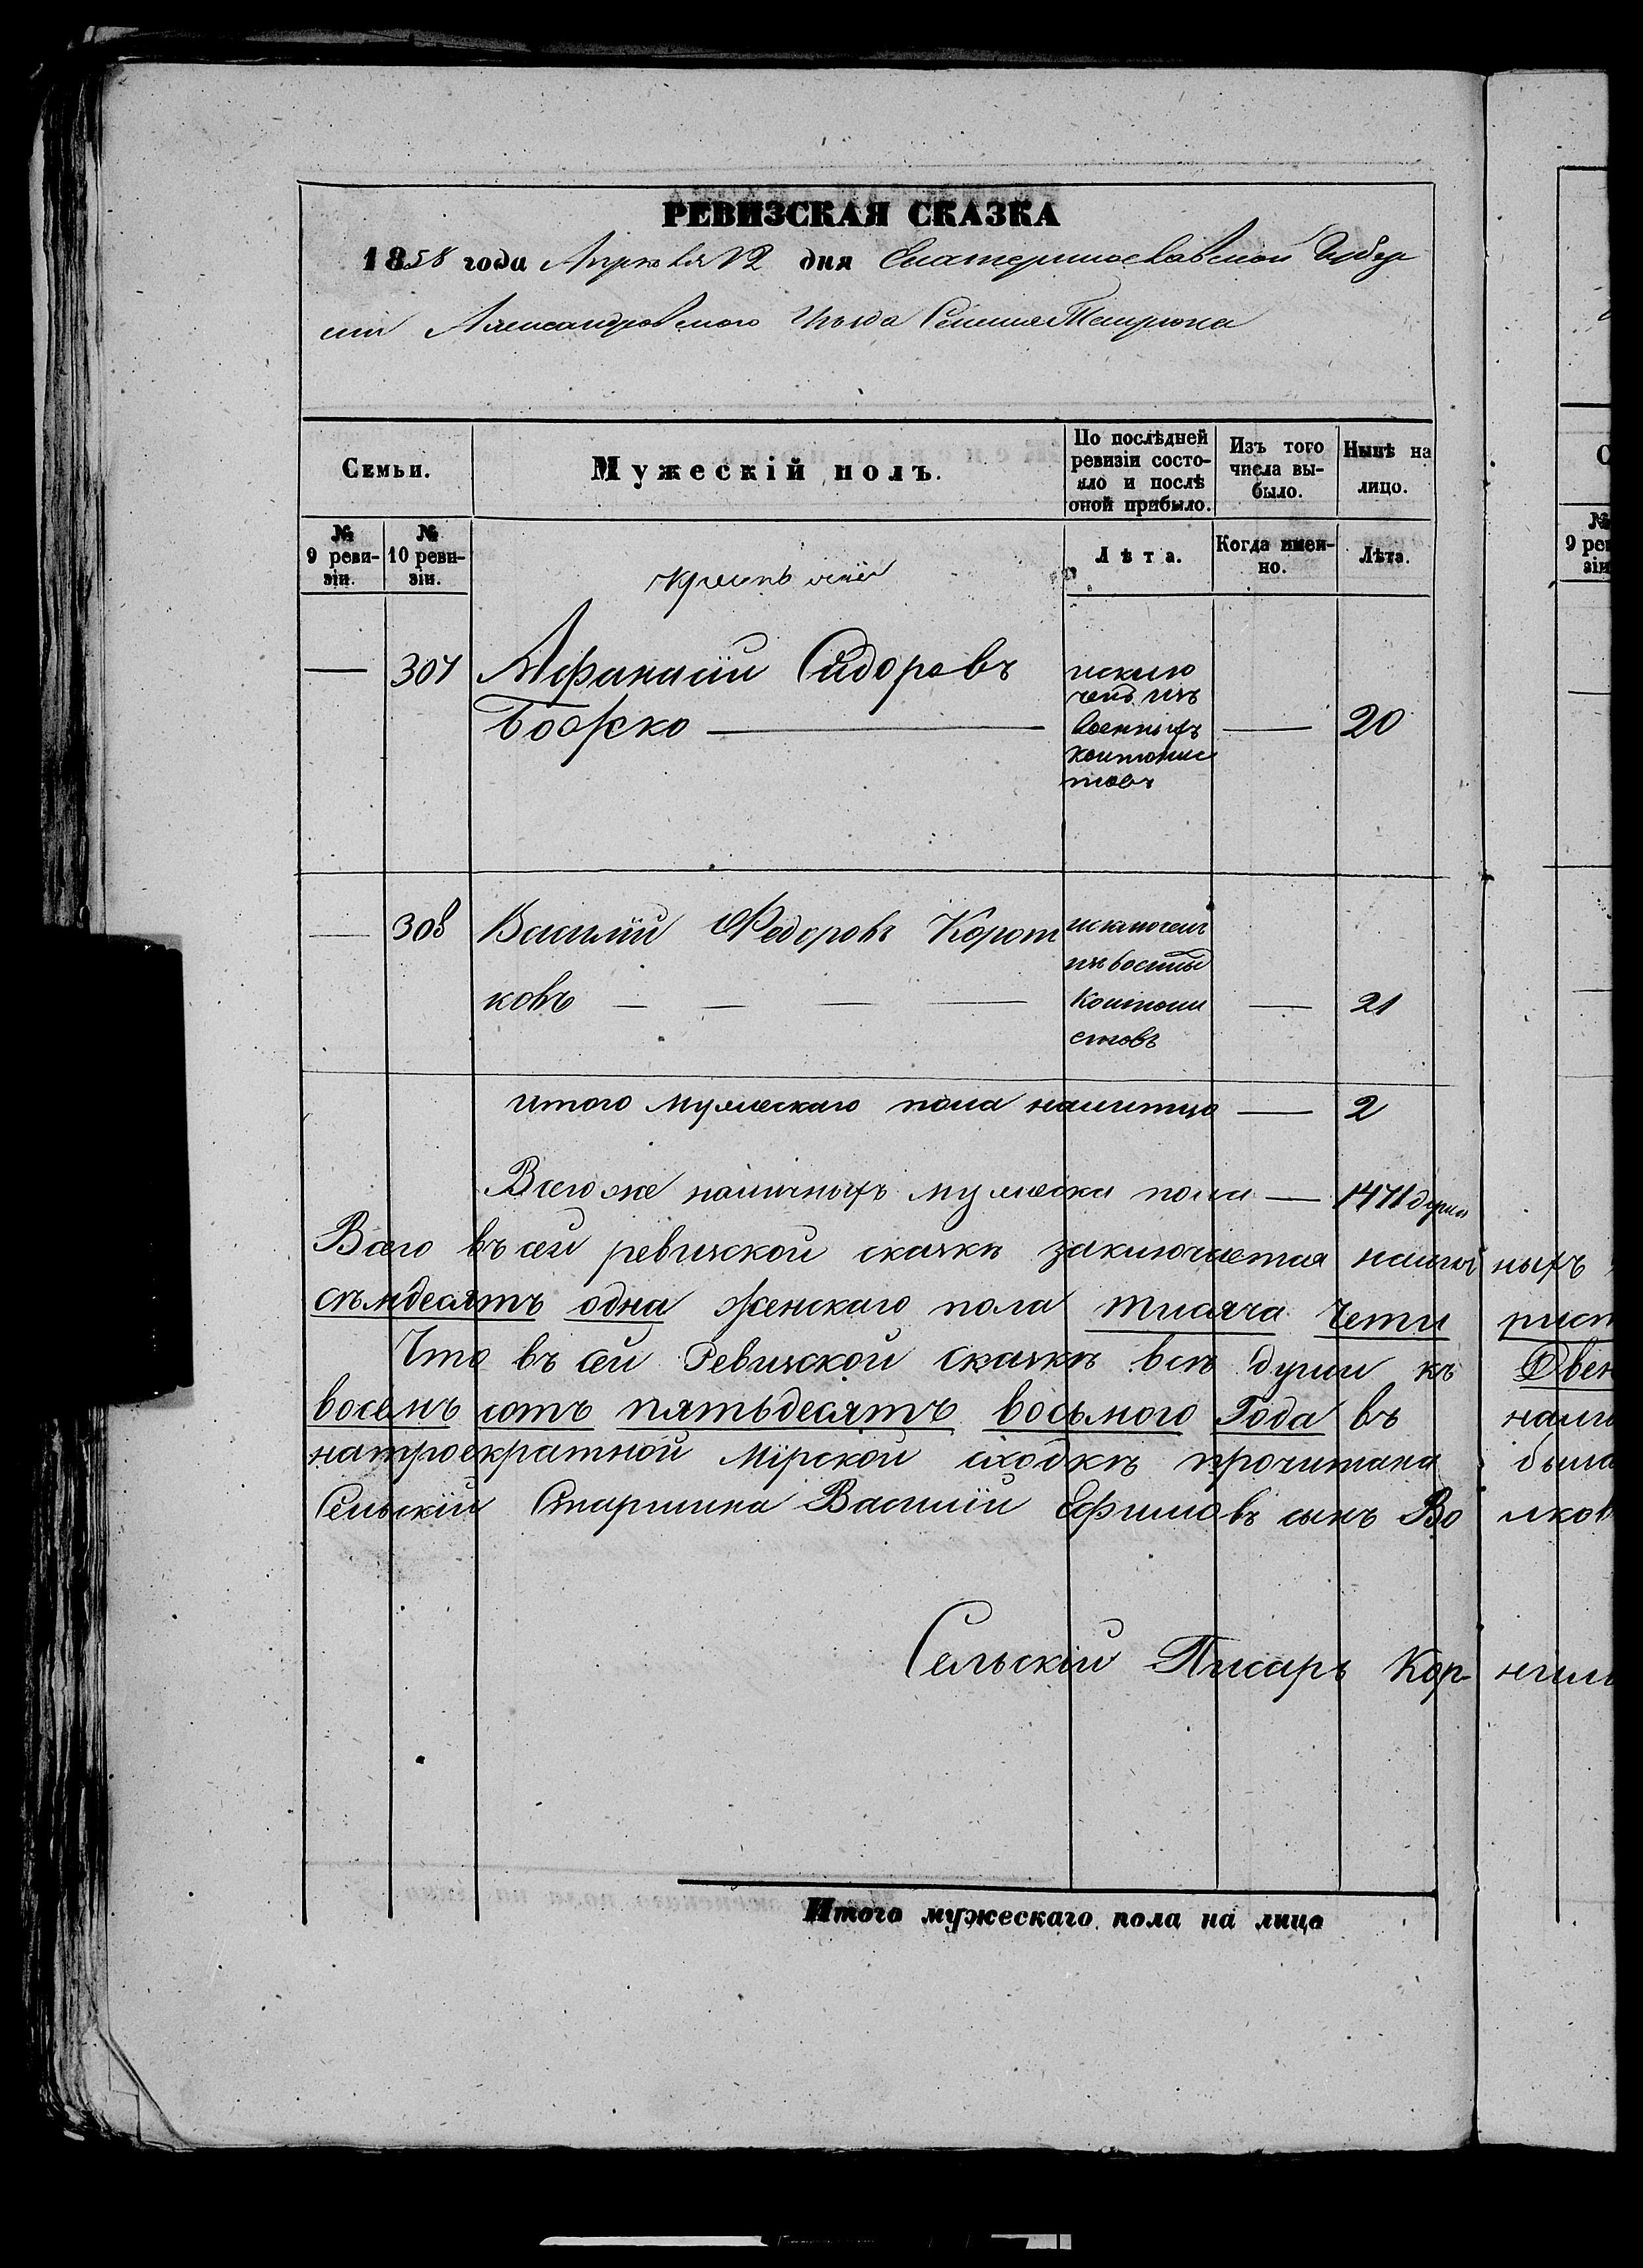 РЕВИЗСКАЯ СКАЗКА
1858 года Апреля 12 дня Екатеринославской Губер
нии Александровского Уезда Селения Темрюка
Семьи.
Мужескій полъ.
По послѣдней ревизіи состо-
яло и послѣ
оной прибыло.
Изъ того
числа вы-
было.
Нынѣ на
лицо.
№
9 реви-
зіи.
№
10 реви-
зіи.
Лѣта.
Когда имен-
но.
Лѣта.
— 307 Афанасій Сидоровъ
Божко —
исклю
ченъ изъ
военныхъ
кантонис
товъ
— 20
— 308 Василій Федоровъ Корот
ковъ — — — —
исключенъ
изъ военны
кантони
стовъ
— 21
итого мужескаго пола налицо — 2
Всего же наличныхъ мужеска пола — 1471 душа
Всего въ сей ревизской сказкѣ заключается налич ныхъ
семдесятъ одна женскаго пола тисяча чети рист
Что въ сей Ревизской Сказкѣ всѣ души къ Двен
восемъ сотъ пятьдесятъ восьмого Года въ налич
на троекратной Мірской сходкѣ прочитана была
Сельскій Старшина Василій Ефимовъ сынъ Во лков
Сельскій Писарь Кор- нил
Итого мужескаго пола на лицо